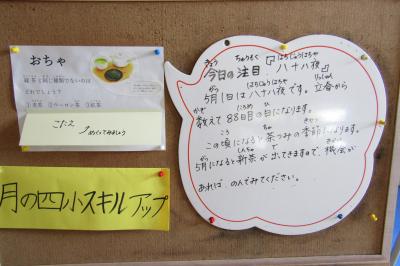 おちゃ
緑茶と同じ種類でないのは
どれでしょう？
①麦茶 ②ウーロン茶 ③紅茶
こたえ
めくってみましょう
月の四小スキルアップ
きょう ちゅうもく はちじゅうはちや
今日の注目『八十八夜』
がつ はちじゅうはちや りっしゅん
5月1日は八十八夜です。立春から
かぞ にちめ ひ
数えて88日目の日になります。
ころ ちゃ きせつ
この頃になると茶つみの季節になります。
がつ しんちゃ で きかい
5月になると新茶が出てきますので、機会が
あれば、のんでみてください。